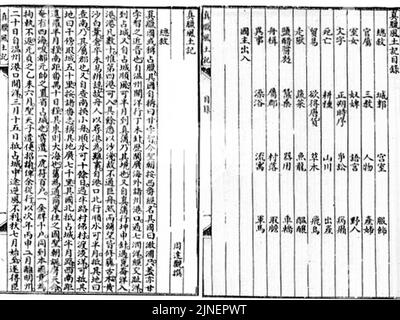 真臘風土記目錄
總敘
城郭 宮室 服飾
官屬 三教 人物 產婦
室女 奴婢 語言 野人
文字 正朔時序 爭訟 病癩
死亡 耕種 山川 出產
貿易 欲得唐貨 草木 飛鳥
走獸 蔬菜 魚龍 醞釀
鹽醋醬麴 蠶桑 器用 車轎
舟楫 屬郡 村落 取膽
異事 澡浴 流寓 軍馬
國主出入
真臘風土記
目錄
真臘風土記
周達觀撰
總敘
真臘國或稱占臘其國自稱曰甘孛智今聖朝按西番經名其國曰澉浦只蓋亦甘
孛智之近音也自溫州開洋行丁未針歷閩廣海外諸州港口過七洲洋經交趾洋
到占城又自占城順風可半月到真蒲乃其境也又自真蒲行坤申針過崑崙洋入
港港凡數十惟第四港可入其餘悉以沙淺故不通巨舟然而彌望皆修藤古木黃
沙白葦倉卒未易辨認故舟人以尋港為難事自港口北行順水可半月抵其地曰
查南乃其屬郡也又自查南換小舟順水可十餘日過半路村佛村渡淡洋可抵其
地曰干傍取城五十里按諸番志稱其地廣七千里其國北抵占城半月路西南距
暹羅半月程南距番禺十日程其東則大海也舊為通商來往之國聖朝誕膺天命
奄有四海唆都元帥之置省占城也嘗遣一虎符百戶一金牌千戶同到本國竟為
拘執不返元貞之乙未六月聖天子遣使招諭俾余從行以次年丙申二月離明州
二十日自溫州港口開洋三月十五日抵占城中途逆風不利秋七月始至遂得臣
真臘風土記
alamy
Image ID: 2JNERWT
www.alamy.com